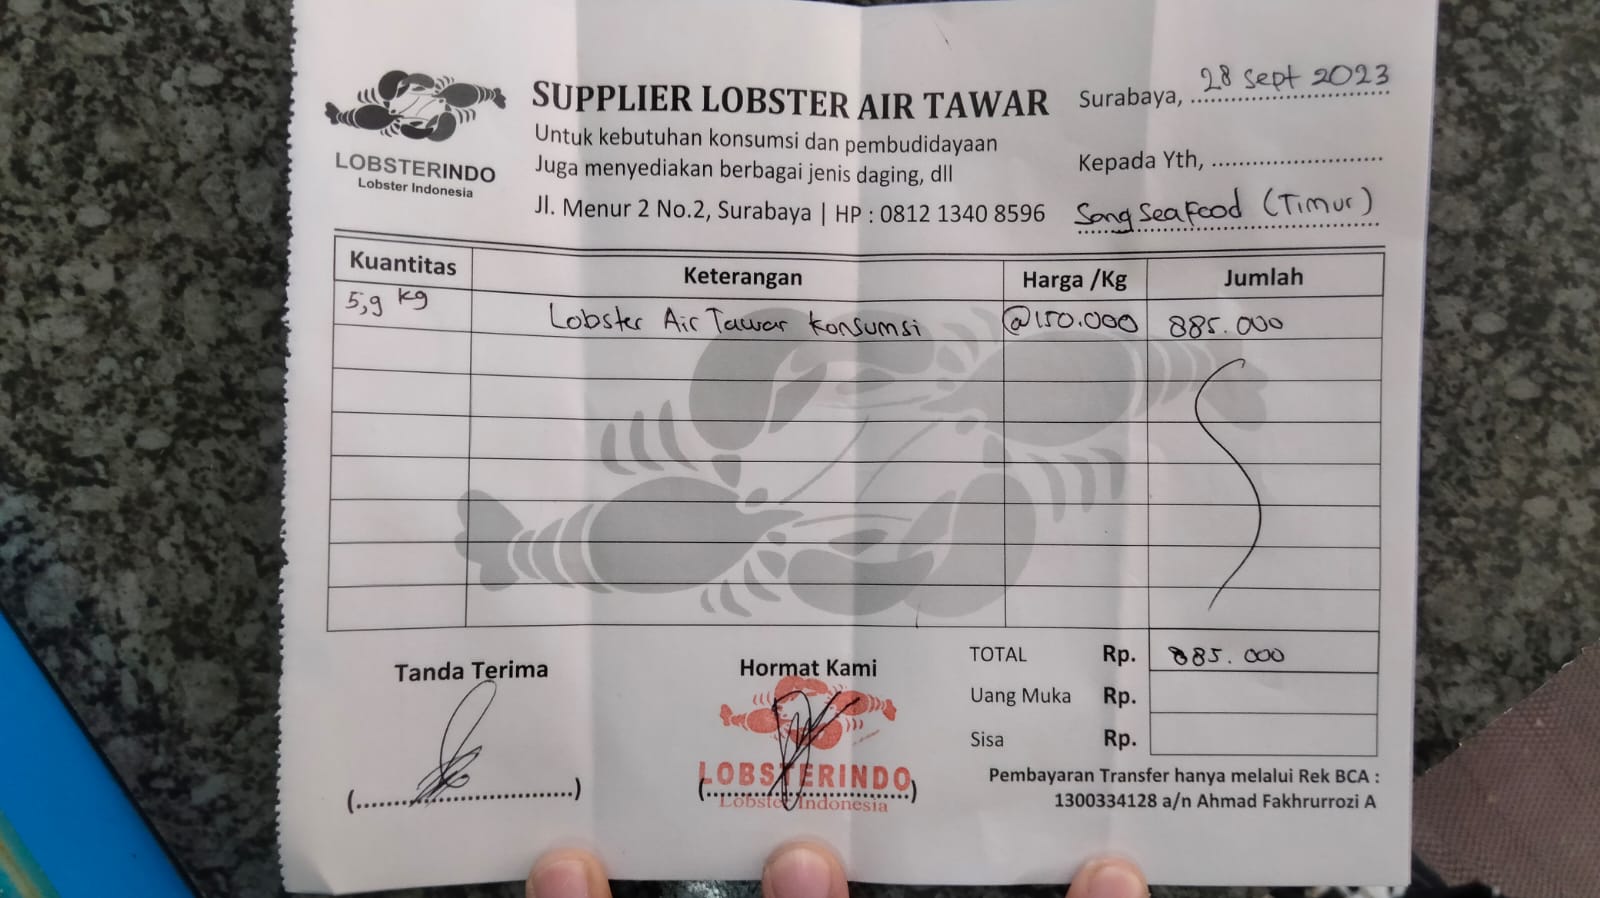 LOBSTERINDO
Lobster Indonesia
SUPPLIER LOBSTER AIR TAWAR
Untuk kebutuhan konsumsi dan pembudidayaan
Juga menyediakan berbagai jenis daging, dll
Jl. Menur 2 No.2, Surabaya | HP : 0812 1340 8596
Surabaya, 28 Sept 2023
Kepada Yth,
Song Seafood (Timur)
Kuantitas Keterangan Harga /Kg Jumlah
5,9 kg Lobster Air Tawar Konsumsi @150.000 885.000
TOTAL Rp. 885.000
Uang Muka Rp.
Sisa Rp.
Tanda Terima
Hormat Kami
LOBSTERINDO
Lobster Indonesia
Pembayaran Transfer hanya melalui Rek BCA :
1300334128 a/n Ahmad Fakhrurrozi A